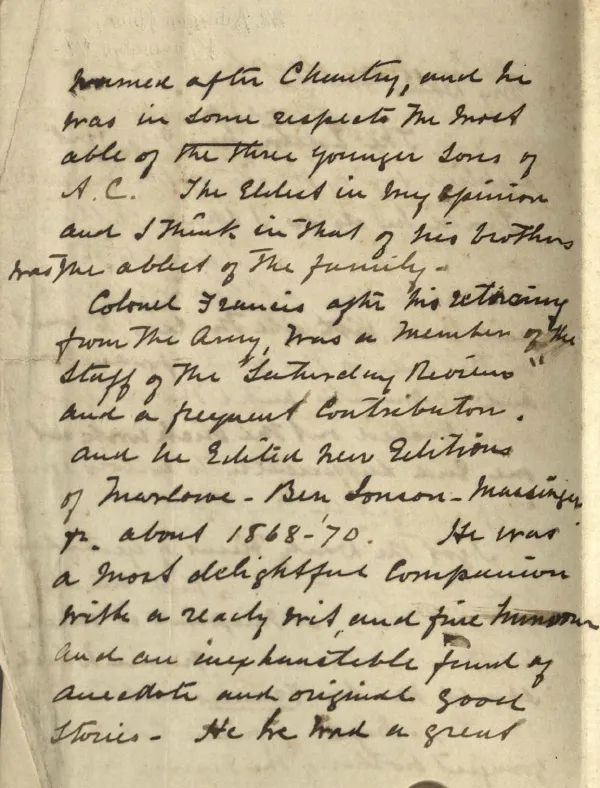 named after Chantry, and he
was in some respects the most
able of the three younger sons of
A.C. The Eldest in my opinion
and I think in that of his brothers
was the ablest of the family -
Colonel Francis after his retiring
from the Army, was a member of the
Staff of the "Saturday Review"
and a frequent Contributor.
and he Edited new Editions
of Marlowe - Ben Jonson - Massinger
about 1868-'70. He was
a most delightful Companion
with a ready wit, and fine humour
and an inexhaustible fund of
anecdote and original good
stories - He he had a great